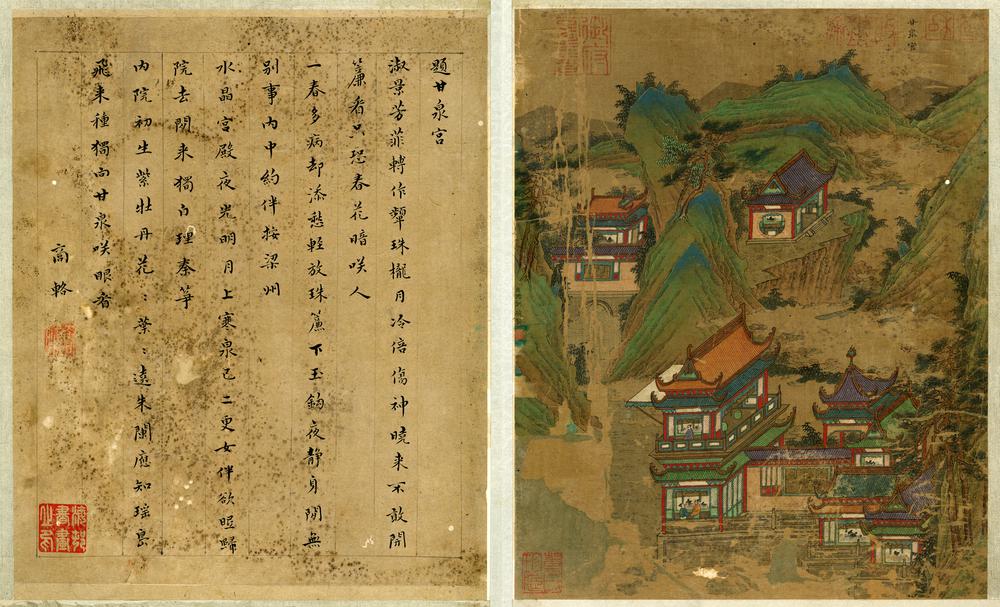 題甘泉宮
淑景芳菲轉作顰珠櫳月冷倍傷神曉來不敢開
簾看只恐春花暗咲人
一春多病却添愁輕放珠簾下玉鈎夜靜身閒無
別事內中約伴按梁州
水晶宮殿夜光明月上寒泉已二更女伴欲歸
院去閒來獨自理秦箏
內院初生紫牡丹花〻葉〻遶朱闌應知瑤島
飛來種獨向甘泉咲眼看
高輅
甘泉宮